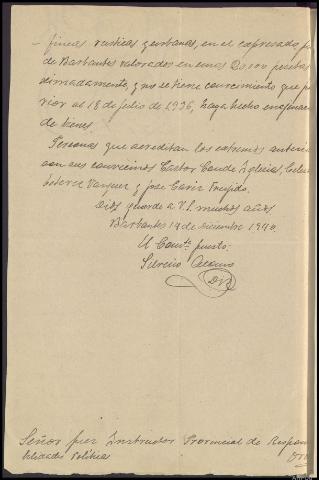 - fincas rústicas y urbanas, en el expresado
de Barbantes valorados en unas 20.000 pesetas
dimadamente, y no se tiene conocimiento que
rior al 18 de Julio de 1936, haya hecho enajenac
de bienes
Personas que acreditan los extremos anteri
son sus convecinos Castor Conde Iglesias
Vazquez y Jose
Dios guarde a V.S. muchos años
Barbantes 14 de diciembre 1940
El Comte. puesto:
Silverio
Señor Juez Instructor Provincial de Respon
bilidades Politicas